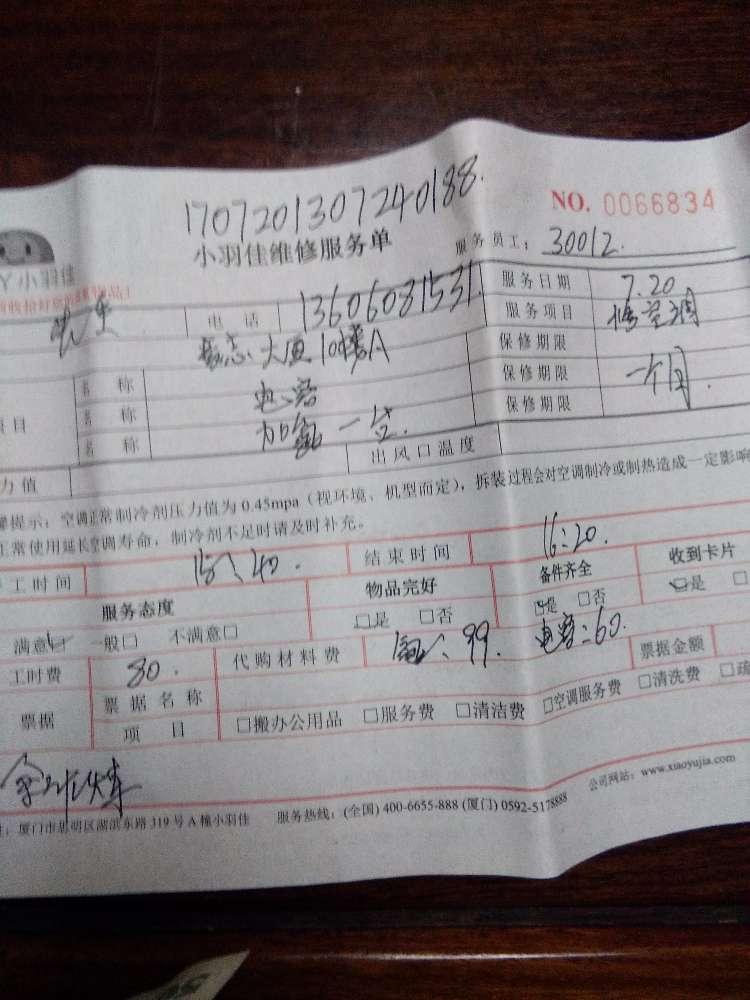 1707201307240188.
NO. 0066834
小羽佳维修服务单
服务员工: 30012.
Y小羽佳
电 话 13606081531
服务日期 7.20
大厦10楼A
服务项目 修空调
保修期限
名 称 电容
保修期限 一个月.
项目 名 称 加氟一台.
保修期限
名 称
力值
出风口温度
提示:空调正常制冷剂压力值为0.45mpa(视环境、机型而定),拆装过程会对空调制冷或制热造成一定影响
正常使用延长空调寿命,制冷剂不足时请及时补充。
工时间 15:40. 结束时间 16:20.
服务态度 物品完好 备件齐全 收到卡片
满意☑ 一般□ 不满意□ □是 □否 ☑是 □否 ☑是 □
工时费 80. 代购材料费 氟:99. 电容:60. 票据金额
票据 票据名称
项 目 □搬办公用品 □服务费 □清洁费 □空调服务费 □清洗费 □疏
厦门市思明区湖滨东路319号A幢小羽佳 服务热线:(全国) 400-6655-888 (厦门) 0592-5178888 公司网站:www.xiaoyujia.com